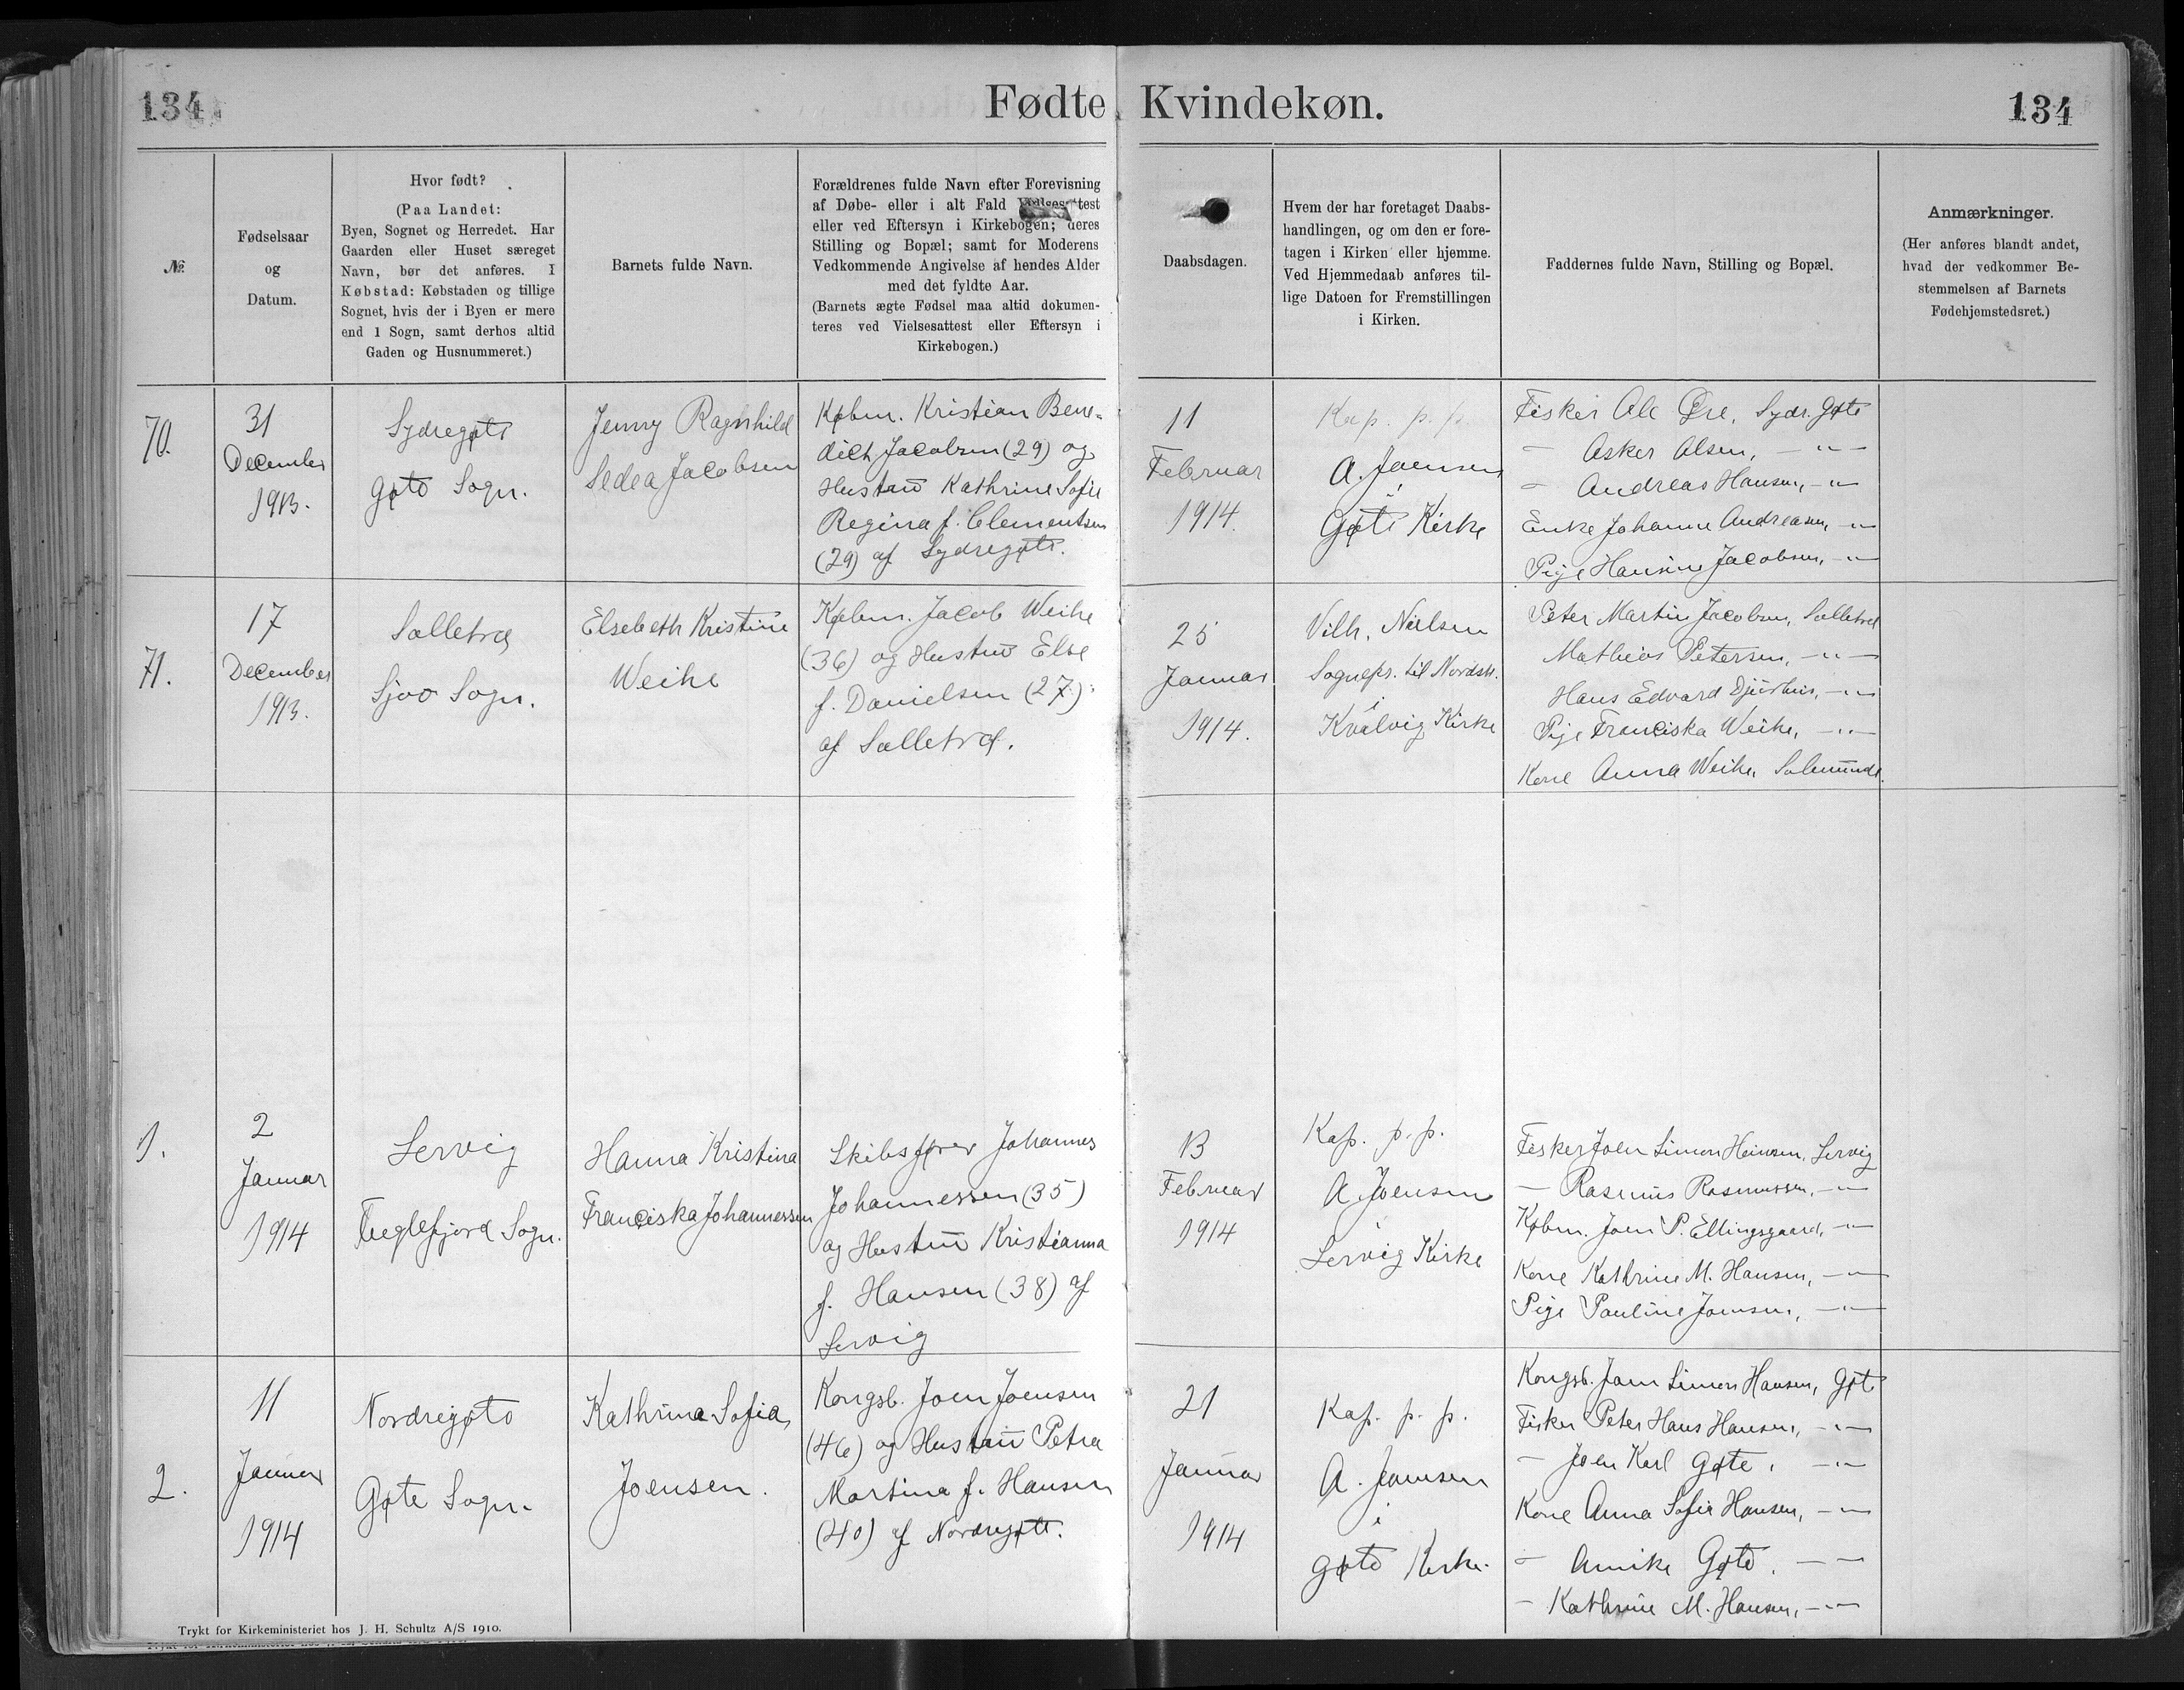 134
Fødte Kvindekøn.
134
№
Fødselsaar
og
Datum.
Hvor født?
(Paa Landet:
Byen, Sognet og Herredet. Har
Gaarden eller Huset særeget
Navn, bør det anføres. I
Købstad: Købstaden og tillige
Sognet, hvis der i Byen er mere
end 1 Sogn, samt derhos altid
Gaden og Husnummeret.)
Barnets fulde Navn.
Forældrenes fulde Navn efter Forevisning
af Døbe- eller i alt Fald Vielsesattest
eller ved Eftersyn i Kirkebogen; deres
Stilling og Bopæl; samt for Moderens
Vedkommende Angivelse af hendes Alder
med det fyldte Aar.
(Barnets ægte Fødsel maa altid dokumen-
teres ved Vielsesattest eller Eftersyn i
Kirkebogen.)
Daabsdagen.
Hvem der har foretaget Daabs-
handlingen, og om den er fore-
tagen i Kirken eller hjemme.
Ved Hjemmedaab anføres til-
lige Datoen for Fremstillingen
i Kirken.
Faddernes fulde Navn, Stilling og Bopæl.
Anmærkninger.
(Her anføres blandt andet,
hvad der vedkommer Be-
stemmelsen af Barnets
Fødehjemstedsret.)
70.
31
December
1913.
Sydregøte
Gøte Sogn.
Jenny Ragnhild
Sedea Jacobsen
Købm. Kristian Bene-
dict Jacobsen (29) og
Hustru Kathrine Sofie
Regina f. Clementsen
(29) af Sydregøte.
11
Februar
1914.
Kap. p. p.
A. Joensen
i
Gøte Kirke
Fisker Ole Øre, Sydr. Gøte
— Asker Olsen, — " —
— Andreas Hansen, — " —
Enke Johanne Andreasen, — " —
Pige Hansine Jacobsen, — " —
71.
17
December
1913.
Selletræ
Sjov Sogn.
Elsebeth Kristine
Weihe
Købm. Jacob Weihe
(36) og Hustru Else
f. Danielsen (27)
af Selletræ.
25
Januar
1914.
Vilh. Nielsen
Sognepr. til Nordstr.
i
Kvalvig Kirke
Peter Martin Jacobsen, Selletræ
Mathias Petersen, — " —
Hans Edvard Djurhus, — " —
Pige Franciska Weihe, — " —
Kone Anna Weihe, Solmunde.
1.
2
Januar
1914
Lervig
Fuglefjord Sogn.
Hanna Kristina
Franciska Johannessen
Skibsfører Johannes
Johannessen (35)
og Hustru Kristianna
f. Hansen (38) af
Lervig
13
Februar
1914
Kap. p. p.
A. Joensen
i
Lervig Kirke
Fisker Joen Simon Heinesen, Lervig
— Rasmus Rasmussen, — " —
Købm. Joen P. Ellingsgaard, — " —
Kone Kathrine M. Hansen, — " —
Pige Pauline Joensen, — " —
2.
11
Januar
1914
Nordregøte
Gøte Sogn.
Kathrina Sofia
Joensen.
Kongsb. Joen Joensen
(46) og Hustru Petra
Martina f. Hansen
(40) af Nordregøte.
21
Januar
1914
Kap. p. p.
A. Joensen
i
Gøte Kirke.
Kongsb. Joen Simon Hansen, Gøte
Fisker Peter Hans Hansen, — " —
— Joen Karl Gøte, — " —
Kone Anna Sofie Hansen, — " —
— Annike Gøte. — —
— Kathrine M. Hansen, — " —
Trykt for Kirkeministeriet hos J. H. Schultz A/S 1910.